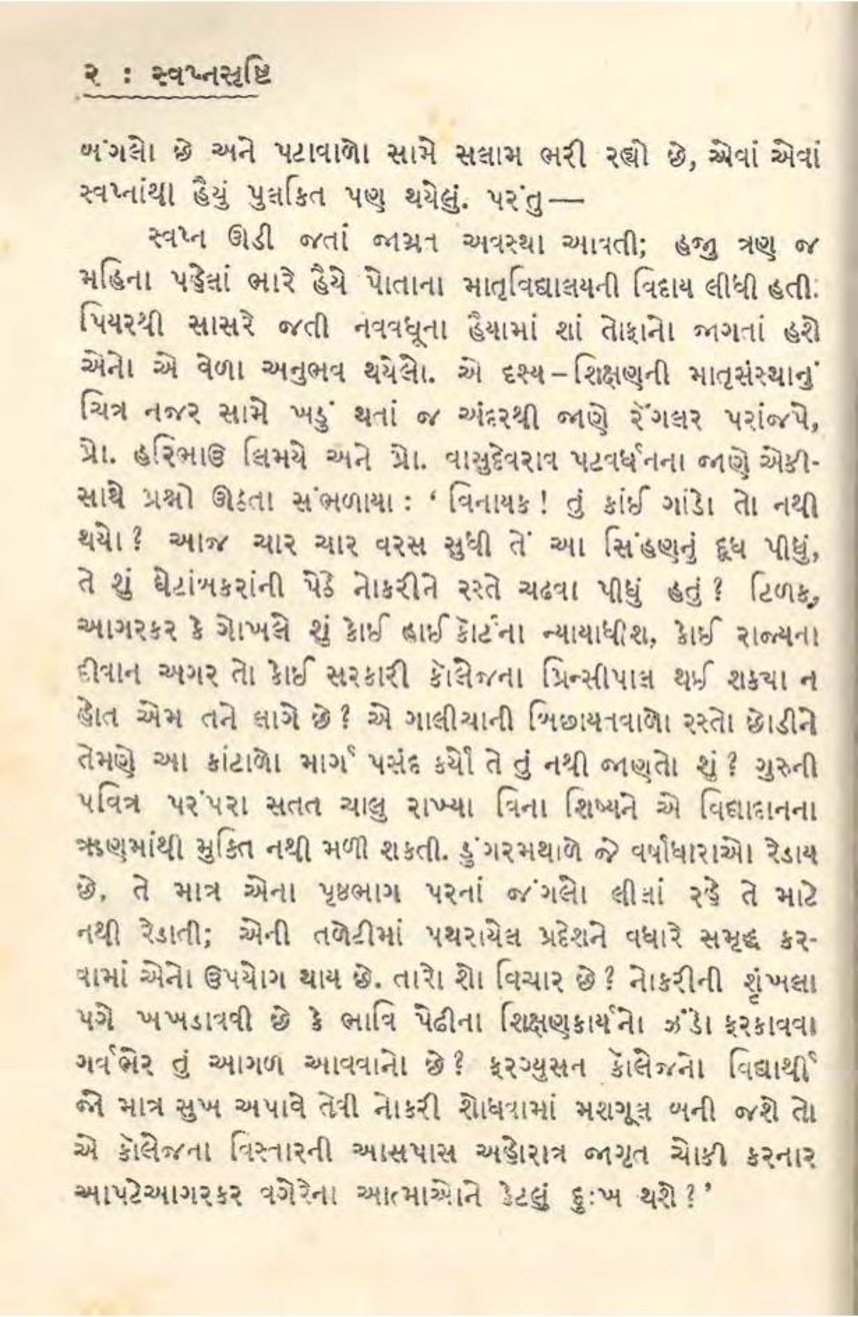 ૨ : સ્વપ્નસૃષ્ટિ
બંગલો છે અને પટાવાળો સામે સલામ ભરી રહ્યો છે, એવાં એવાં
સ્વપ્નાંથી હૈયું પુલકિત પણ થયેલું. પરંતુ—
સ્વપ્ન ઊડી જતાં જાગ્રત અવસ્થા આવતી; હજુ ત્રણ જ
મહિના પહેલાં ભારે હૈયે પોતાના માતૃવિદ્યાલયની વિદાય લીધી હતી.
પિયરથી સાસરે જતી નવવધૂના હૈયામાં શાં તોફાનો જાગતાં હશે
એનો એ વેળા અનુભવ થયેલો. એ દૃશ્ય – શિક્ષણની માતૃસંસ્થાનું
ચિત્ર નજર સામે ખડું થતાં જ અંદરથી જાણે રૅંગલર પરાંજપે,
પ્રો. હરિભાઉ લિમયે અને પ્રો. વાસુદેવરાવ પટવર્ધનના જાણે એકી-
સાથે પ્રશ્નો ઊઠતા સંભળાયા : ‘ વિનાયક ! તું કાંઈ ગાંડો તો નથી
થયો ? આજ ચાર ચાર વરસ સુધી તેં આ સિંહણનું દૂધ પીધું,
તે શું ઘેટાંબકરાંની પેઠે નોકરીને રસ્તે ચઢવા પીધું હતું ? ટિળક,
આગરકર કે ગોખલે શું કોઈ હાઈ કૉર્ટના ન્યાયાધીશ, કોઈ રાજ્યના
દીવાન અગર તો કોઈ સરકારી કૉલેજના પ્રિન્સીપાલ થઈ શકયા ન
હોત એમ તને લાગે છે ? એ ગાલીચાની બિછાયતવાળો રસ્તો છોડીને
તેમણે આ કાંટાળો માર્ગ પસંદ કર્યો તે તું નથી જાણતો શું ? ગુરુની
પવિત્ર પરંપરા સતત ચાલુ રાખ્યા વિના શિષ્યને એ વિદ્યાદાનના
ઋણમાંથી મુક્તિ નથી મળી શકતી. ડુંગરમથાળે જે વર્ષાધારાઓ રેડાય
છે, તે માત્ર એના પૃષ્ઠભાગ પરનાં જંગલો લીલાં રહે તે માટે
નથી રેડાતી; એની તળેટીમાં પથરાયેલ પ્રદેશને વધારે સમૃદ્ધ કર-
વામાં એનો ઉપયોગ થાય છે. તારો શો વિચાર છે ? નોકરીની શૃંખલા
પગે ખખડાવવી છે કે ભાવિ પેઢીના શિક્ષણકાર્યનો ઝંડો ફરકાવવા
ગર્વભેર તું આગળ આવવાનો છે ? ફરગ્યુસન કૉલેજનો વિદ્યાર્થી
જો માત્ર સુખ અપાવે તેવી નોકરી શોધવામાં મશગૂલ બની જશે તો
એ કૉલેજના વિસ્તારની આસપાસ અહોરાત્ર જાગૃત ચોકી કરનાર
આપટેઆગરકર વગેરેના આત્માઓને કેટલું દુઃખ થશે ? ’